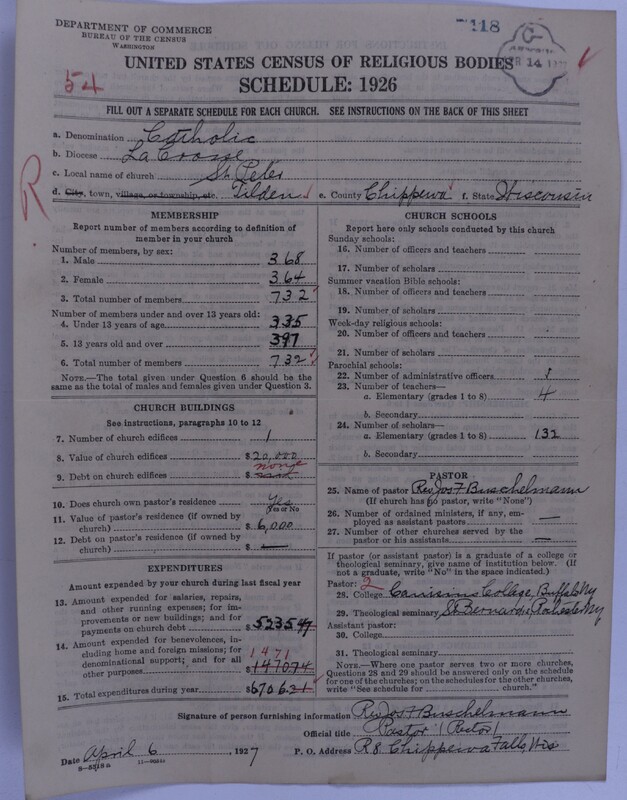 DEPARTMENT OF COMMERCE
BUREAU OF THE CENSUS
WASHINGTON
118
UNITED STATES CENSUS OF RELIGIOUS BODIES
SCHEDULE: 1926
54
FILL OUT A SEPARATE SCHEDULE FOR EACH CHURCH. SEE INSTRUCTIONS ON THE BACK OF THIS SHEET
a. Denomination Catholic
b. Diocese La Crosse
c. Local name of church St. Peter
d. City, town, village, or township, etc. Tilden e. County Chippewa f. State Wisconsin
R
MEMBERSHIP
Report number of members according to definition of
member in your church
Number of members, by sex:
1. Male 368
2. Female 364
3. Total number of members 732
Number of members under and over 13 years old:
4. Under 13 years of age 335
5. 13 years old and over 397
6. Total number of members 732
NOTE.—The total given under Question 6 should be the
same as the total of males and females given under Question 3.
CHURCH BUILDINGS
See instructions, paragraphs 10 to 12
7. Number of church edifices 1
8. Value of church edifices $20,000
none
9. Debt on church edifices $
10. Does church own pastor's residence Yes
Yes or No
11. Value of pastor's residence (if owned by
church) $6,000
12. Debt on pastor's residence (if owned by
church) $ —
EXPENDITURES
Amount expended by your church during last fiscal year
13. Amount expended for salaries, repairs,
and other running expenses; for im-
provements or new buildings; and for
payments on church debt $523547
14. Amount expended for benevolences, in-
cluding home and foreign missions; for
denominational support; and for all 1471
other purposes $147074
15. Total expenditures during year $670621
CHURCH SCHOOLS
Report here only schools conducted by this church
Sunday schools:
16. Number of officers and teachers
17. Number of scholars
Summer vacation Bible schools:
18. Number of officers and teachers
19. Number of scholars
Week-day religious schools:
20. Number of officers and teachers
21. Number of scholars
Parochial schools:
22. Number of administrative officers 1
23. Number of teachers—
a. Elementary (grades 1 to 8) 4
b. Secondary
24. Number of scholars—
a. Elementary (grades 1 to 8) 132
b. Secondary
PASTOR
25. Name of pastor Rev Jos F Buschelmann
(If church has no pastor, write "None")
26. Number of ordained ministers, if any, em-
ployed as assistant pastors —
27. Number of other churches served by the
pastor or his assistants —
If pastor (or assistant pastor) is a graduate of a college or
theological seminary, give name of institution below. (If
not a graduate, write "No" in the space indicated.)
Pastor: 2
28. College Canisius College, Buffalo Ny
29. Theological seminary St Bernards, Rochester Ny
Assistant pastor:
30. College
31. Theological seminary
NOTE.—Where one pastor serves two or more churches,
Questions 28 and 29 should be answered only on the schedule
for one of the churches; on the schedules for the other churches,
write "See schedule for church."
Signature of person furnishing information Rev Jos F Buschelmann
Official title Pastor (Rector)
Date April 6, 1927 P. O. Address R8 Chippewa Falls, Wis